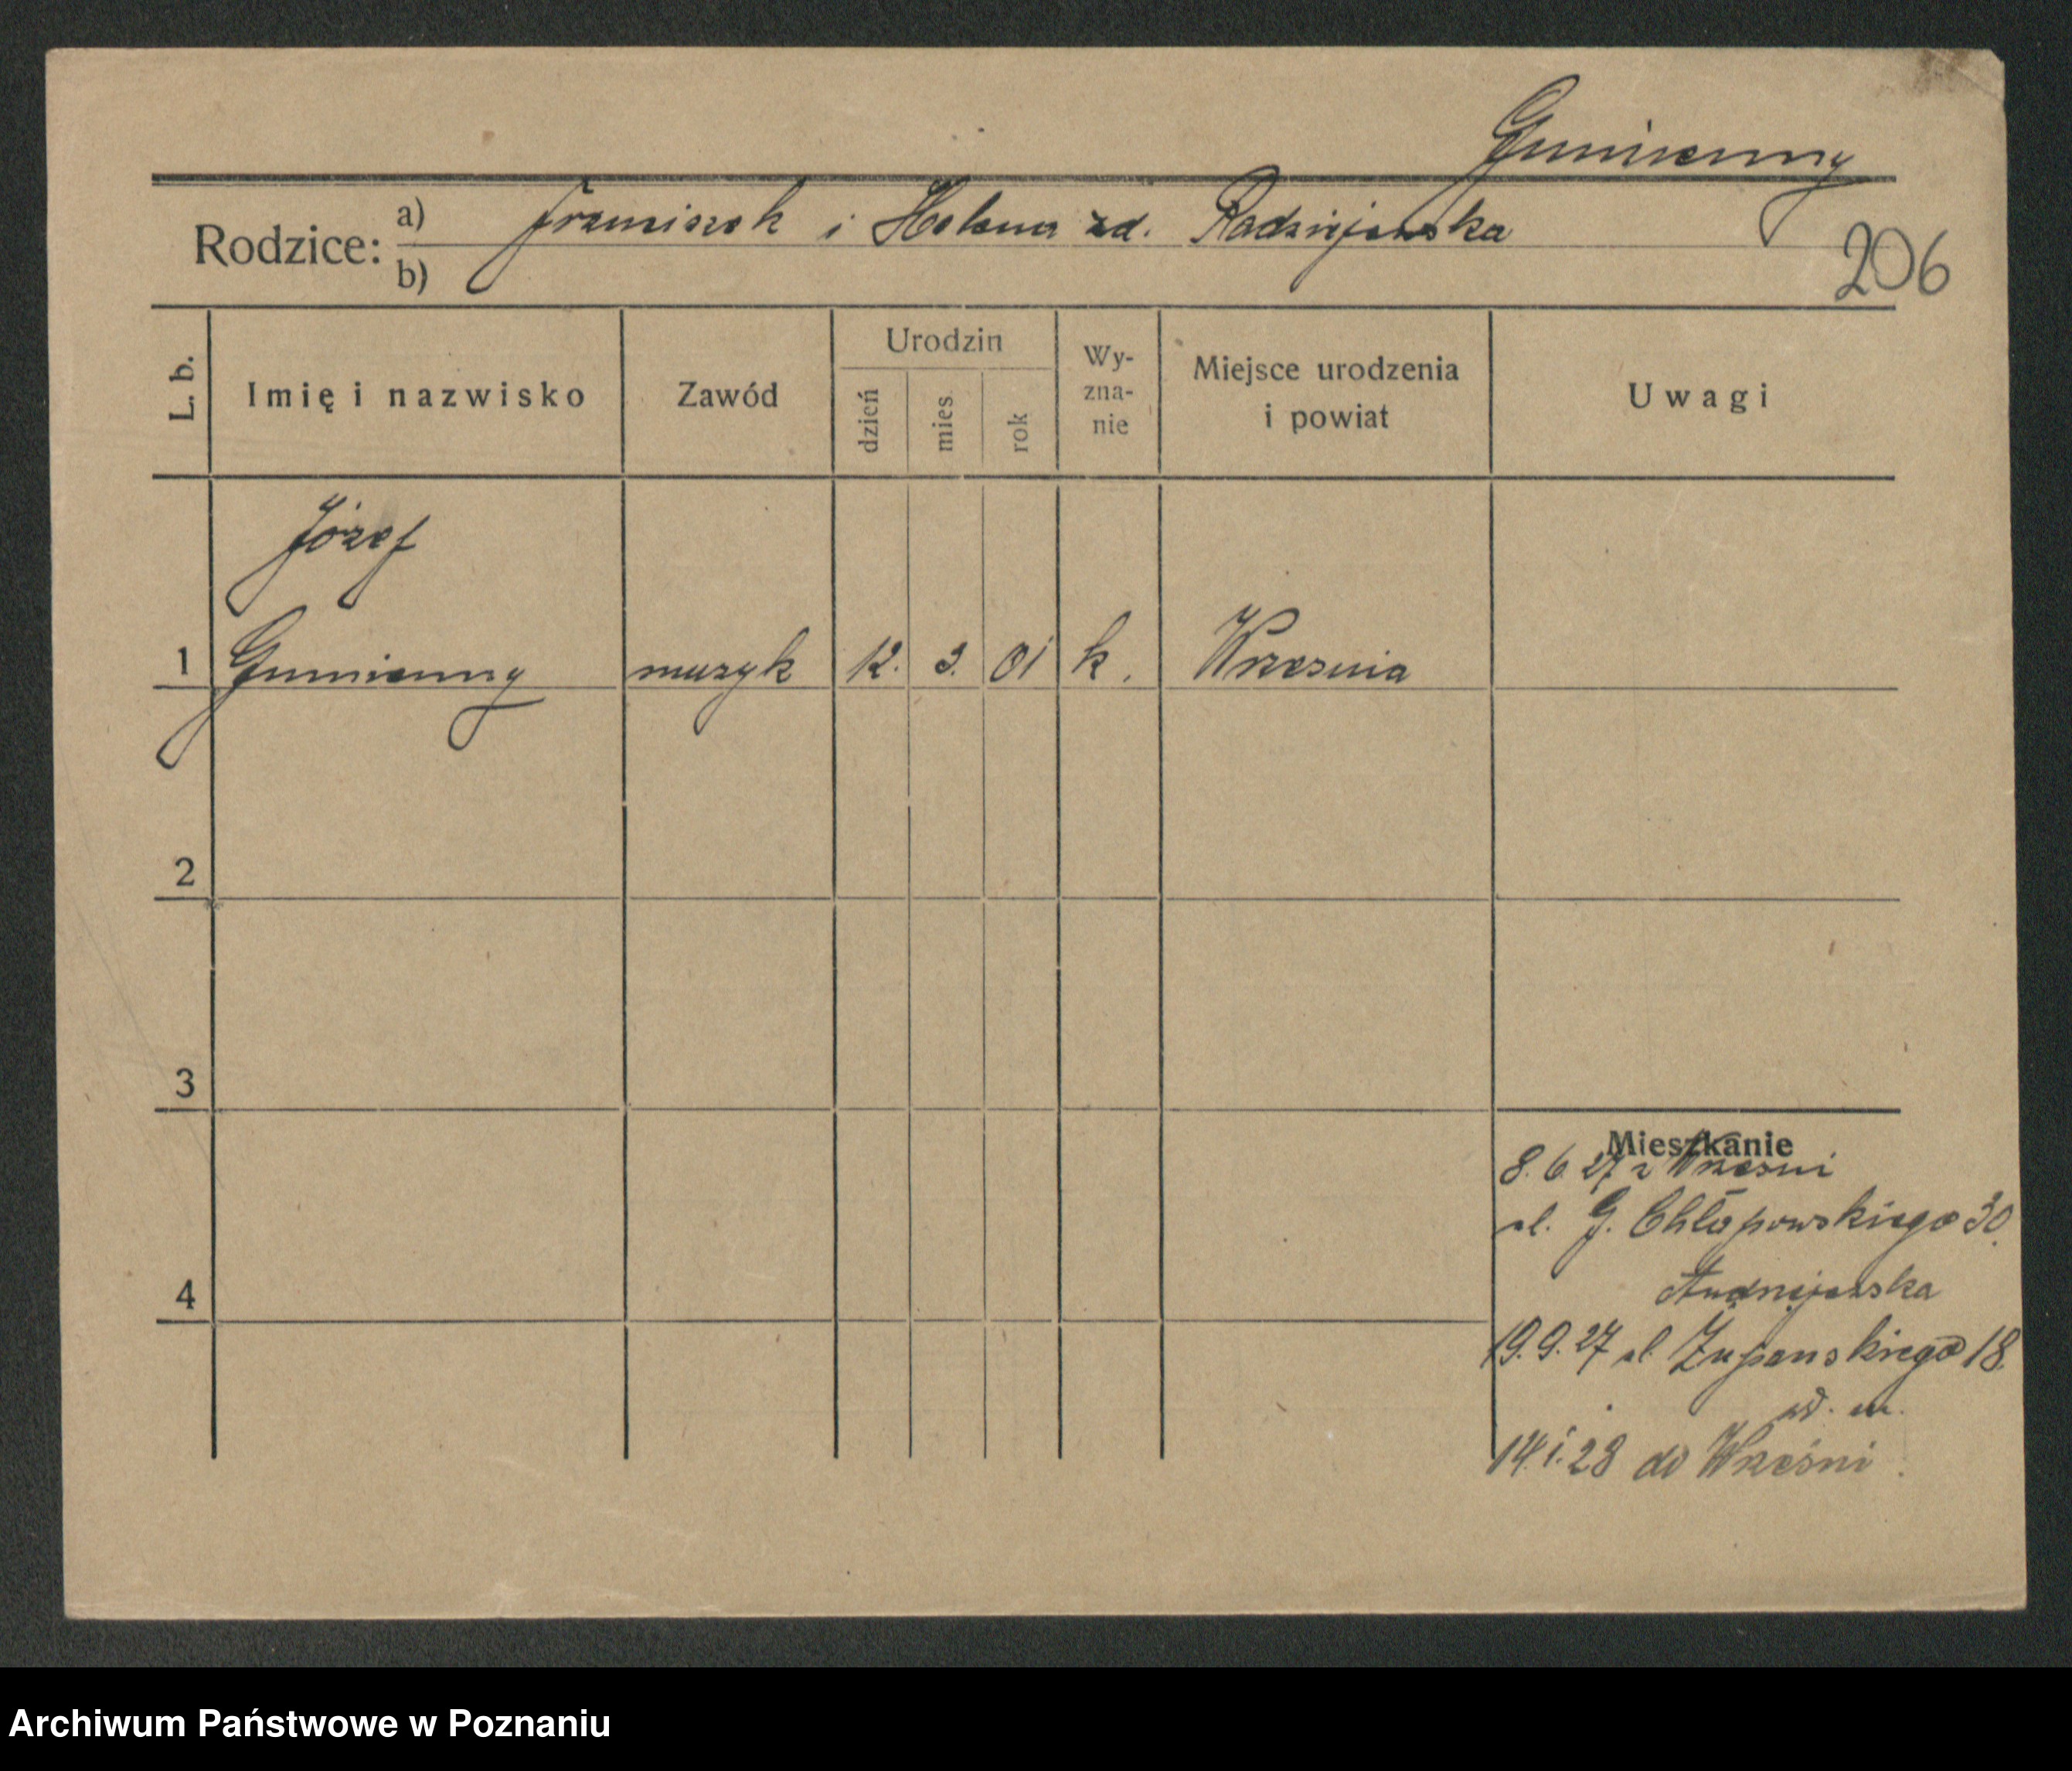 Gumienny
Rodzice: a) Franciszek i Helena zd. Radziejewska
b)
206
L. b.
Imię i nazwisko
Zawód
Urodzin
dzień
mies.
rok
Wy-
zna-
nie
Miejsce urodzenia
i powiat
Uwagi
Józef
1 Gumienny muzyk 12. 3. 01 k. Wrzesnia
2
3
4
Mieszkanie
8.6.27 z Wrzesni
ul. G. Chłapowskiego 30.
19.9.27 ul. Żupanskiego 18.
14.1.28 do Wrześni.
Archiwum Państwowe w Poznaniu